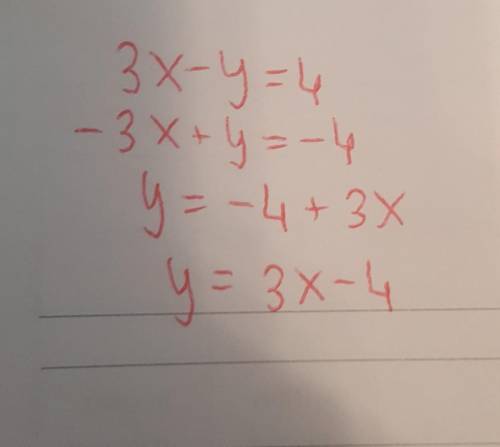 3x-y=4
-3x+y=-4
y=-4+3x
y=3x-4